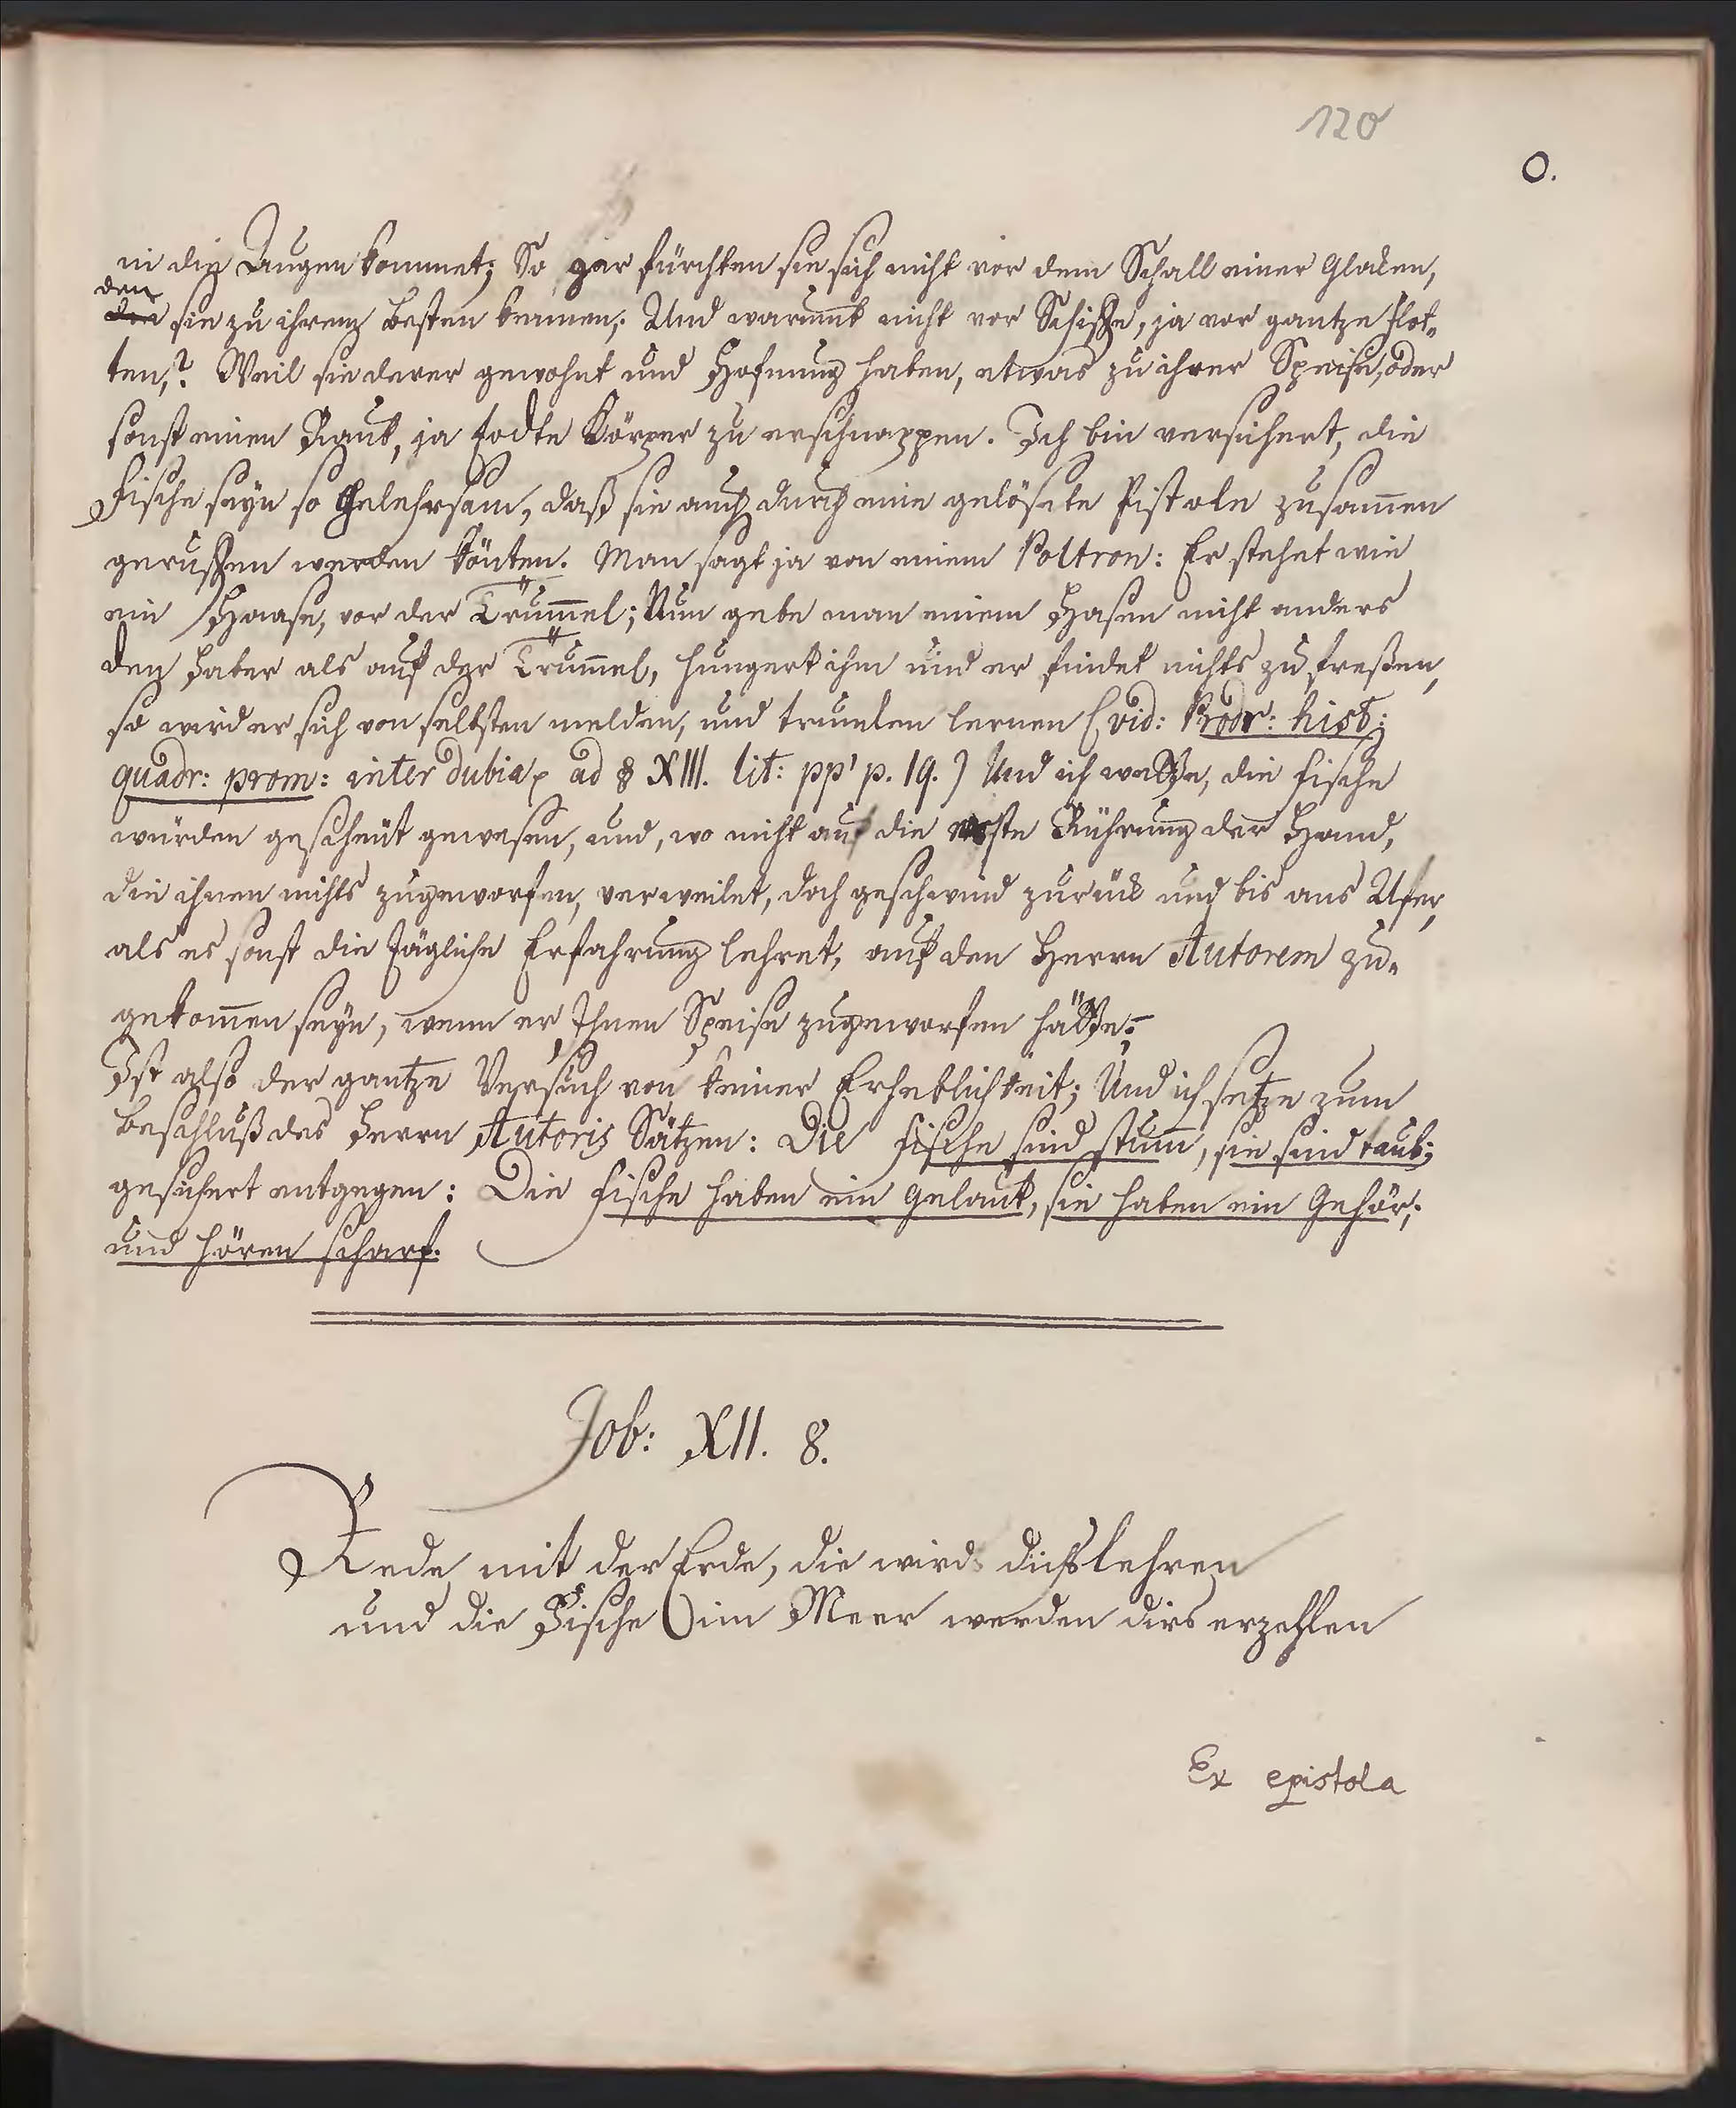 120
O.
in die Augen kommet; So gar fürchten sie sich nicht vor dem Schall einer Gloken,
den
die sie zu ihrem Besten kennen; Und warumb nicht vor Schiffe, ja vor gantze Flot„
ten,? Weil sie derer gewohnt und Hofnung haben, etwas zu ihrer Speise, oder
sonst einen Raub, ja todte Körper zu erschnappen. Ich bin versichert, die
Fische seyn so gelehrsam, daß sie auch durch eine gelösete Pistole zusam̅en
geruffen werden könten. Man sagt ja von einem Poltron: Er stehet wie
ein Haase, vor der Trum̅el; Nun gebe man einem Hasen nicht anders
den Haber als auf der Trum̅el, hungert ihm und er findet nichts zu freßen,
so wird er sich von selbsten melden, und trumlen lernen (vid: Prodr: hist;
quadr: prom: inter dubia ad § XIII. lit: pp' p. 19.) Und ich wette, die Fische
würden gescheut gewesen, und, wo nicht auf die erste Rührung der Hand,
die ihnen nichts zugeworfen, verweilet, doch geschwind zurück und bis ans Ufer,
als es sonst die tägliche Erfahrung lehret, auf den Herrn Autorem zu„
gekom̅en seyn, wenn er Ihnen Speise zugeworfen hätte;
Ist also der gantze Versuch von keiner Erheblichkeit; Und ich setze zum
Beschluß des Herrn Autoris Sätzen: Die Fische sind stum̅, sie sind taub;
gesichert entgegen: Die Fische haben ein Gelaut, sie haben ein Gehör;
und hören scharf.
Job: XII. 8.
Rede mit der Erde, die wird dichs lehren
und die Fische im Meer werden dirs erzehlen
Ex epistola